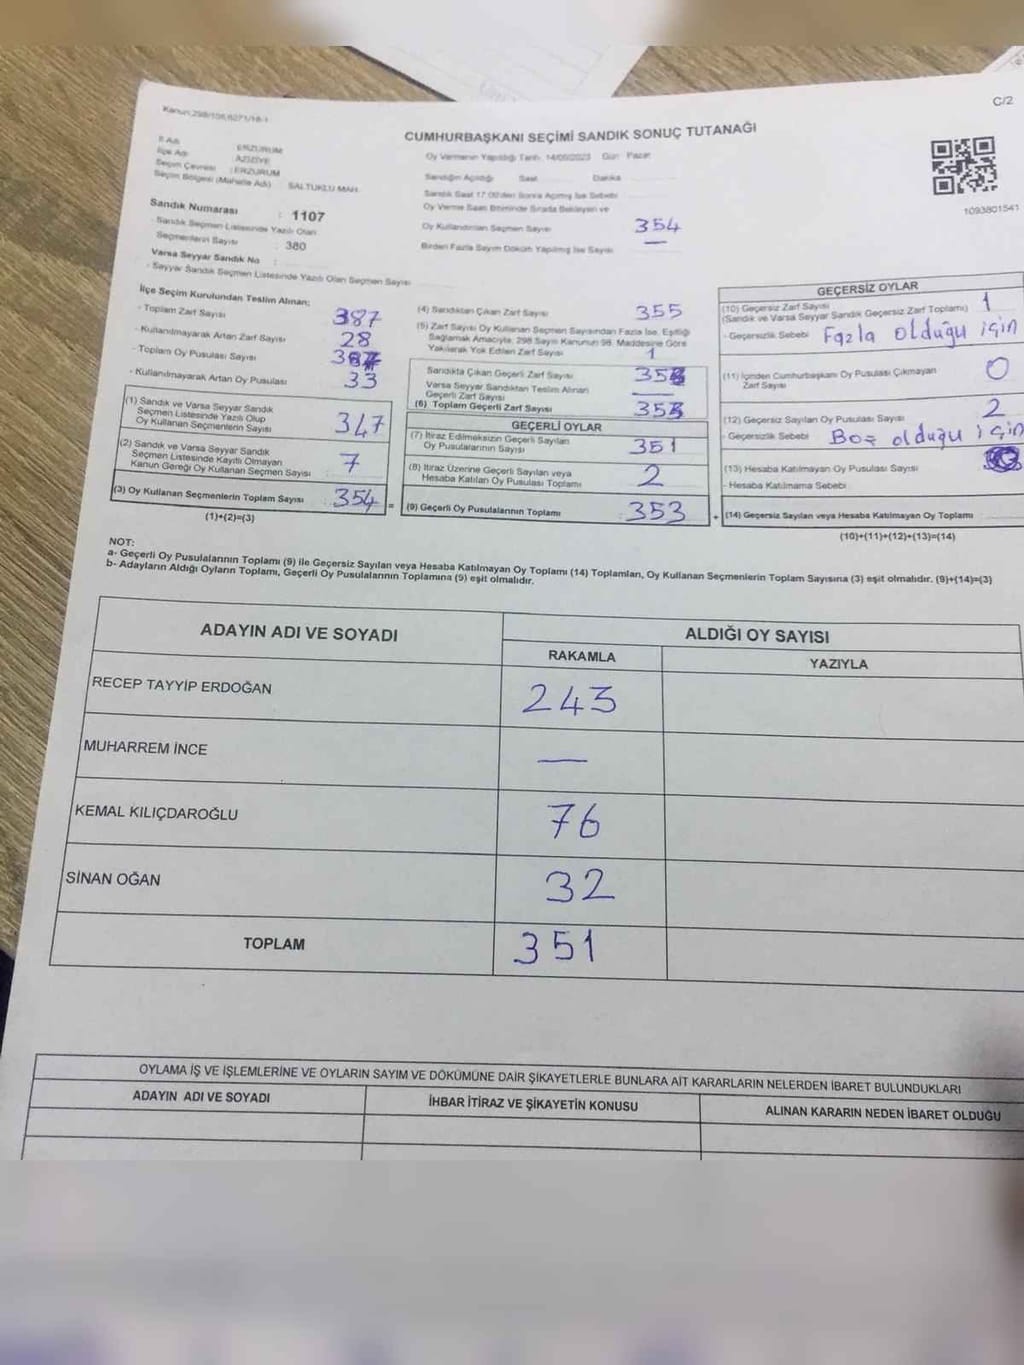 C/2
Kanun,298/106,6271/18-1
CUMHURBAŞKANI SEÇİMİ SANDIK SONUÇ TUTANAĞI
İl Adı ERZURUM
İlçe Adı AZİZİYE
Seçim Çevresi : ERZURUM
Seçim Bölgesi (Mahalle Adı) SALTUKLU MAH.
Sandık Numarası : 1107
- Sandık Seçmen Listesinde Yazılı Olan
Seçmenlerin Sayısı : 380
Varsa Seyyar Sandık No :
- Seyyar Sandık Seçmen Listesinde Yazılı Olan Seçmen Sayısı
Oy Vermenin Yapıldığı Tarih: 14/05/2023 Gün: Pazar
Sandığın Açıldığı Saat Dakika
Sandık Saat 17:00'den Sonra Açılmış İse Sebebi
Oy Verme Saati Bitiminde Sırada Bekleyen ve
Oy Kullandırılan Seçmen Sayısı 354
Birden Fazla Sayım Döküm Yapılmış İse Sayısı —
1093801541
İlçe Seçim Kurulundan Teslim Alınan;
- Toplam Zarf Sayısı 387
- Kullanılmayarak Artan Zarf Sayısı 28
- Toplam Oy Pusulası Sayısı
- Kullanılmayarak Artan Oy Pusulası 33
(1) Sandık ve Varsa Seyyar Sandık
Seçmen Listesinde Yazılı Olup
Oy Kullanan Seçmenlerin Sayısı 347
(2) Sandık ve Varsa Seyyar Sandık
Seçmen Listesinde Kayıtlı Olmayan
Kanun Gereği Oy Kullanan Seçmen Sayısı 7
(3) Oy Kullanan Seçmenlerin Toplam Sayısı : 354 =
(1)+(2)=(3)
(4) Sandıktan Çıkan Zarf Sayısı 355
(5) Zarf Sayısı Oy Kullanan Seçmen Sayısından Fazla İse, Eşitliği
Sağlamak Amacıyla, 298 Sayılı Kanunun 98. Maddesine Göre
Yakılarak Yok Edilen Zarf Sayısı 1
Sandıkta Çıkan Geçerli Zarf Sayısı
Varsa Seyyar Sandıktan Teslim Alınan
Geçerli Zarf Sayısı —
(6) Toplam Geçerli Zarf Sayısı
GEÇERLİ OYLAR
(7) İtiraz Edilmeksizin Geçerli Sayılan
Oy Pusulalarının Sayısı 351
(8) İtiraz Üzerine Geçerli Sayılan veya
Hesaba Katılan Oy Pusulası Toplamı 2
(9) Geçerli Oy Pusulalarının Toplamı : 353 +
GEÇERSİZ OYLAR
(10) Geçersiz Zarf Sayısı 1
(Sandık ve Varsa Seyyar Sandık Geçersiz Zarf Toplamı)
- Geçersizlik Sebebi Fazla olduğu için
(11) İçinden Cumhurbaşkanı Oy Pusulası Çıkmayan
Zarf Sayısı 0
(12) Geçersiz Sayılan Oy Pusulası Sayısı 2
- Geçersizlik Sebebi Boş olduğu için
(13) Hesaba Katılmayan Oy Pusulası Sayısı
- Hesaba Katılmama Sebebi
(14) Geçersiz Sayılan veya Hesaba Katılmayan Oy Toplamı
(10)+(11)+(12)+(13)=(14)
NOT:
a- Geçerli Oy Pusulalarının Toplamı (9) ile Geçersiz Sayılan veya Hesaba Katılmayan Oy Toplamı (14) Toplamları, Oy Kullanan Seçmenlerin Toplam Sayısına (3) eşit olmalıdır. (9)+(14)=(3)
b- Adayların Aldığı Oyların Toplamı, Geçerli Oy Pusulalarının Toplamına (9) eşit olmalıdır.
ADAYIN ADI VE SOYADI ALDIĞI OY SAYISI
RAKAMLA YAZIYLA
RECEP TAYYİP ERDOĞAN 243
MUHARREM İNCE —
KEMAL KILIÇDAROĞLU 76
SİNAN OĞAN 32
TOPLAM 351
OYLAMA İŞ VE İŞLEMLERİNE VE OYLARIN SAYIM VE DÖKÜMÜNE DAİR ŞİKAYETLERLE BUNLARA AİT KARARLARIN NELERDEN İBARET BULUNDUKLARI
ADAYIN ADI VE SOYADI İHBAR İTİRAZ VE ŞİKAYETİN KONUSU ALINAN KARARIN NEDEN İBARET OLDUĞU